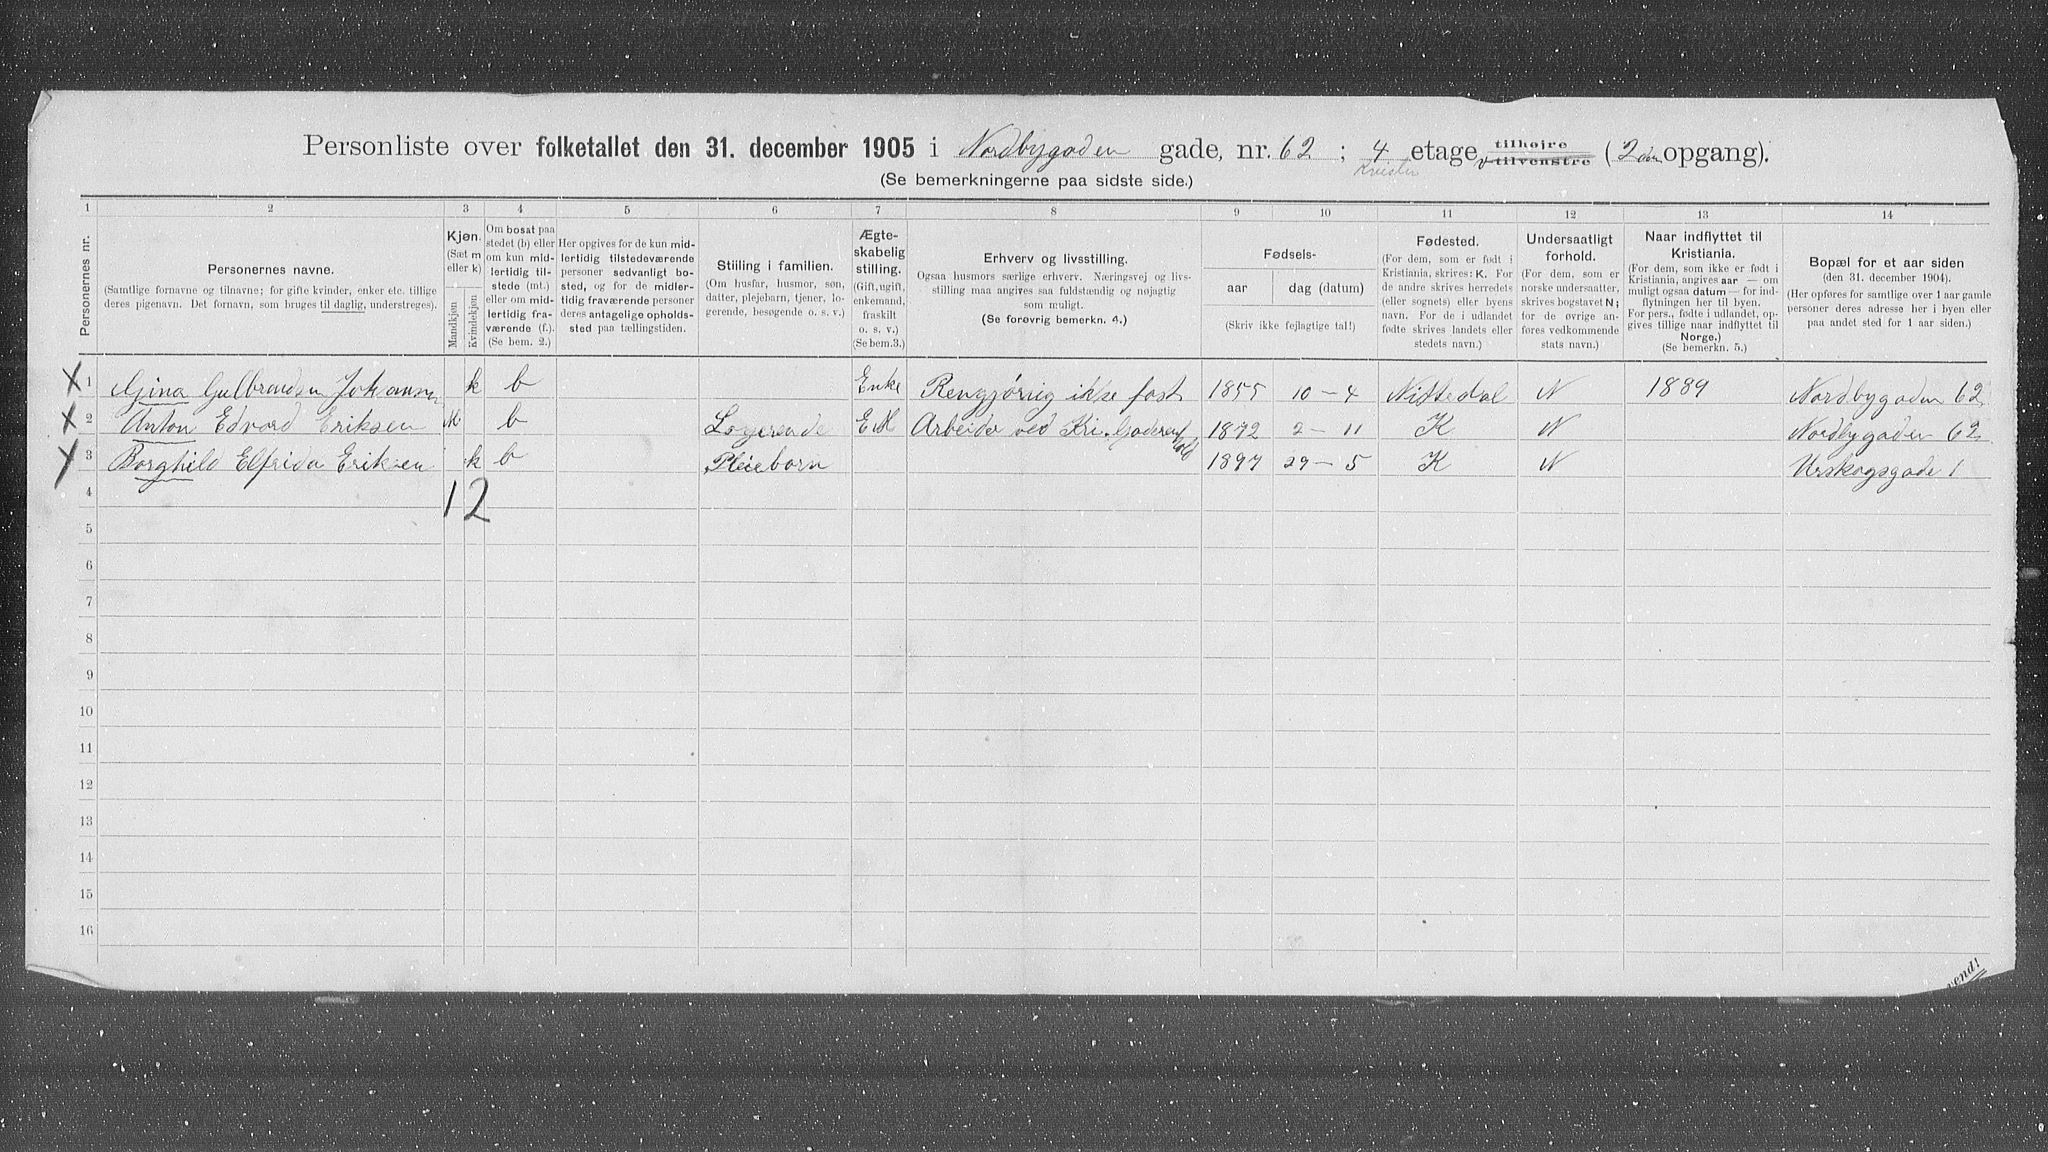 Personliste over folketallet den 31. december 1905 i Nordbygaden gade, nr. 62 ; 4 etage tilhøjre
Kvister v tilvenstre (2den opgang).
(Se bemerkningerne paa sidste side.)
1 2 3 4 5 6 7 8 9 10 11 12 13 14
Personernes nr.
Personernes navne.
(Samtlige fornavne og tilnavne; for gifte kvinder, enker etc. tillige
deres pigenavn. Det fornavn, som bruges til daglig, understreges).
Kjøn.
(Sæt m
eller k)
Mandkjøn
Kvindekjøn
Om bosat paa
stedet (b) eller
om kun mid-
lertidig til-
stede (mt.)
eller om mid-
lertidig fra-
værende (f.).
(Se bem. 2.)
Her opgives for de kun mid-
lertidig tilstedeværende
personer sedvanligt bo-
sted, og for de midler-
tidig fraværende personer
deres antagelige opholds-
sted paa tællingstiden.
Stiiling i familien.
(Om husfar, husmor, søn,
datter, plejebarn, tjener, lo-
gerende, besøgende o. s. v.)
Ægte-
skabelig
stilling.
(Gift, ugift,
enkemand,
fraskilt
o. s. v.)
(Se bem. 3.)
Erhverv og livsstilling.
Ogsaa husmors særlige erhverv. Næringsvej og livs-
stilling maa angives saa fuldstændig og nøjagtig
som muligt.
(Se forøvrig bemerkn. 4.)
Fødsels-
aar dag (datum)
(Skriv ikke fejlagtige tal!)
Fødested.
(For dem, som er født i
Kristiania, skrives: K. For
de andre skrives herredets
(eller sognets) eller byens
navn. For de i udlandet
fødte skrives landets eller
stedets navn.)
Undersaatligt
forhold.
(For dem, som er
norske undersaatter,
skrives bogstavet N;
for de øvrige an-
føres vedkommende
stats navn.)
Naar indflyttet til
Kristiania.
(For dem, som ikke er født i
Kristiania, angives aar — om
muligt ogsaa datum — for ind-
flytningen her til byen.
For pers., fødte i udlandet, op-
gives tillige naar indflyttet til
Norge.)
(Se bemerkn. 5.)
Bopæl for et aar siden
(den 31. december 1904).
(Her opføres for samtlige over 1 aar gamle
personer deres adresse her i byen eller
paa andet sted for 1 aar siden.)
X 1 Gina Gulbrandsen Johansen k b Enke Rengjøring ikke fast 1855 10 — 4 Nittedal N 1889 Nordbygaden 62
X 2 Anton Edvard Eriksen m b Logerende EM Arbeider ved Kr.a Gaderenhold 1872 2 — 11 K N Nordbygaden 62
X 3 Borghild Elfrida Eriksen k b Pleiebarn 1897 29 — 5 K N Urskogsgade 1
4 1 2
5
6
7
8
9
10
11
12
13
14
15
16
vend!